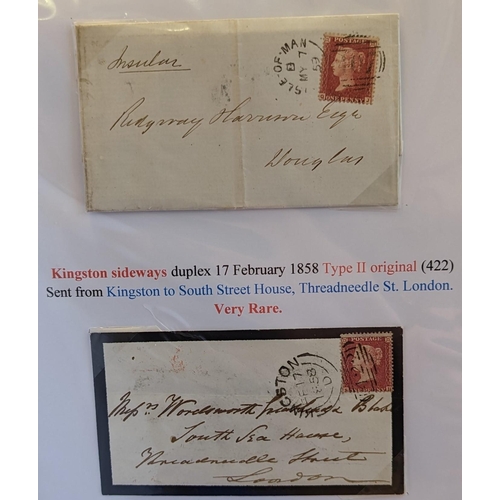 Insular
ISLE-OF-MAN
B
MY 7
59
POSTAGE
ONE PENNY
Ridgway Harrison Esqr
Douglas
Kingston sideways duplex 17 February 1858 Type II original (422)
Sent from Kingston to South Street House, Threadneedle St. London.
Very Rare.
POSTAGE
17
58
Messrs Wordsworth
South Sea House,
Threadneedle Street
London